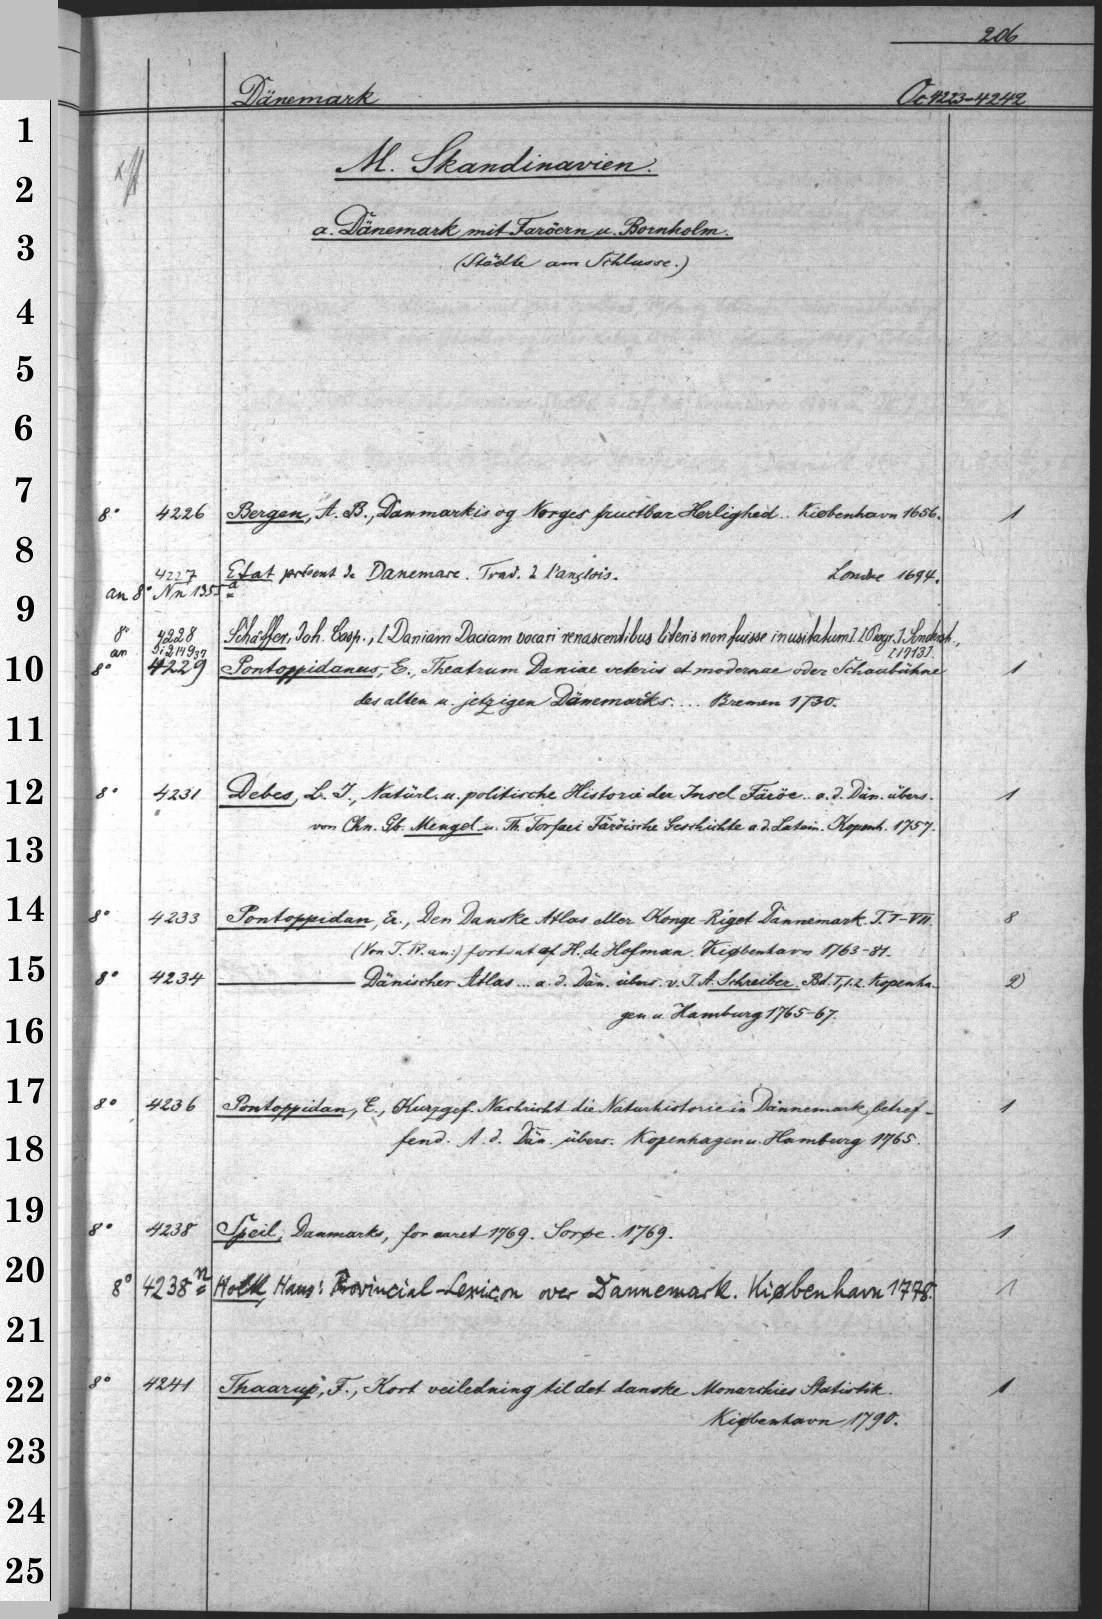 206
Dänemark Oc 4223-4242
1
M. Skandinavien.
2
a. Dänemark mit Faröern u. Bornholm.
3
(Städte am Schlusse.)
4
5
6
7
8° 4226 Bergen, A. B., Danmarkis og Norges fructbar Herlighed.. Kiøbenhavn 1656. 1
8
4227 Etat présent de Danemarc. Trad. de l'anglois. Londre 1694.
an 8° Nn 1355 a
9
8° 4228 Schäffer, Joh. Casp., [Daniam Daciam vocari renascentibus literis non fuisse inusitatum]. [Progr.]
an [1713].
10
8° 4229 Pontoppidanus, E., Theatrum Daniae veteris et modernae oder Schaubühne 1
des alten u. jetzigen Dänemarks.... Bremen 1730.
11
12
8° 4231 Debes, L. J., Natürl. u. politische Historie der Insel Färöe.. a. d. Dän. übers. 1
von Chn. Gb. Mengel u. Th. Torfaei Färöische Geschichte a. d. Latein. Kopenh. 1757.
13
14
8° 4233 Pontoppidan, E., Den Danske Atlas eller Konge-Riget Dannemark. T. I-VII. 8
(Von T. IV. an:) fortsat af H. de Hofman. Kiøbenhavn 1763-81.
15
8° 4234 ——— Dänischer Atlas... a. d. Dän. übers. v. J. A. Schreiber. Bd. I, 1.2. Kopenha- 2
gen u. Hamburg 1765-67.
16
17
8° 4236 Pontoppidan, E., Kurzgef. Nachricht die Naturhistorie in Dännemark betref- 1
fend. A. d. Dän. übers. Kopenhagen u. Hamburg 1765.
18
19
8° 4238 Speil, Danmarks, for aaret 1769. Sorøe. 1769. 1
20
8° 4238 n Holk, Hans: Provincial-Lexicon over Dannemark. Kiøbenhavn 1778. 1
21
22
8° 4241 Thaarup, F., Kort veiledning til det danske Monarchies Statistik. 1
Kiøbenhavn 1790.
23
24
25